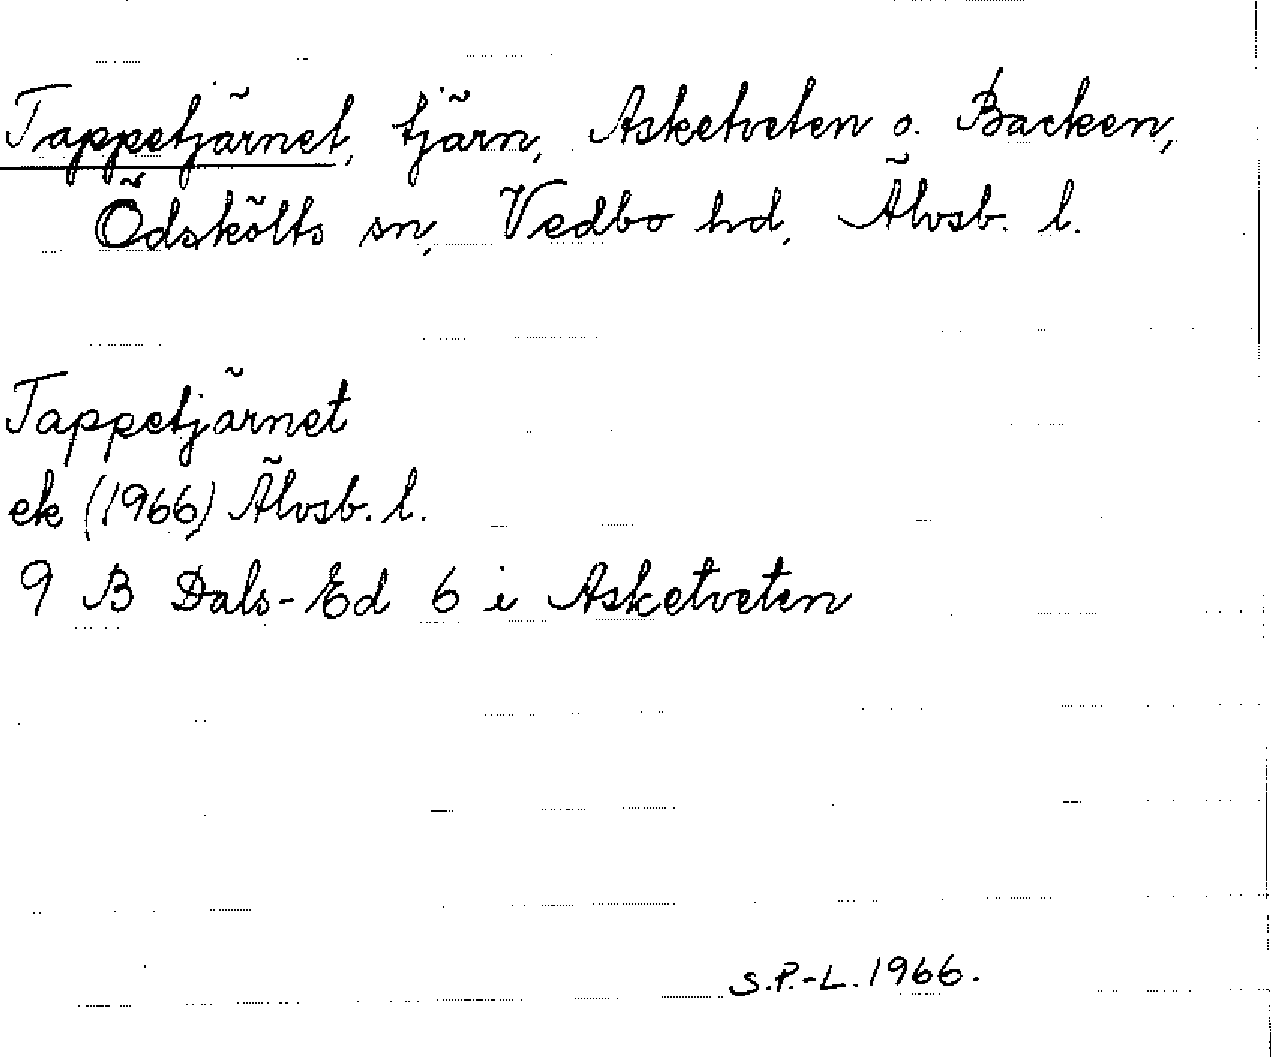 Tappetjärnet, tjärn, Asketveten o. Backen,
Ödskölts sn, Vedbo hd, Älvsb. l.
Tappetjärnet
ek (1966) Älvsb. l.
9 B Dals-Ed 6 i Asketveten
S.P.-L. 1966.